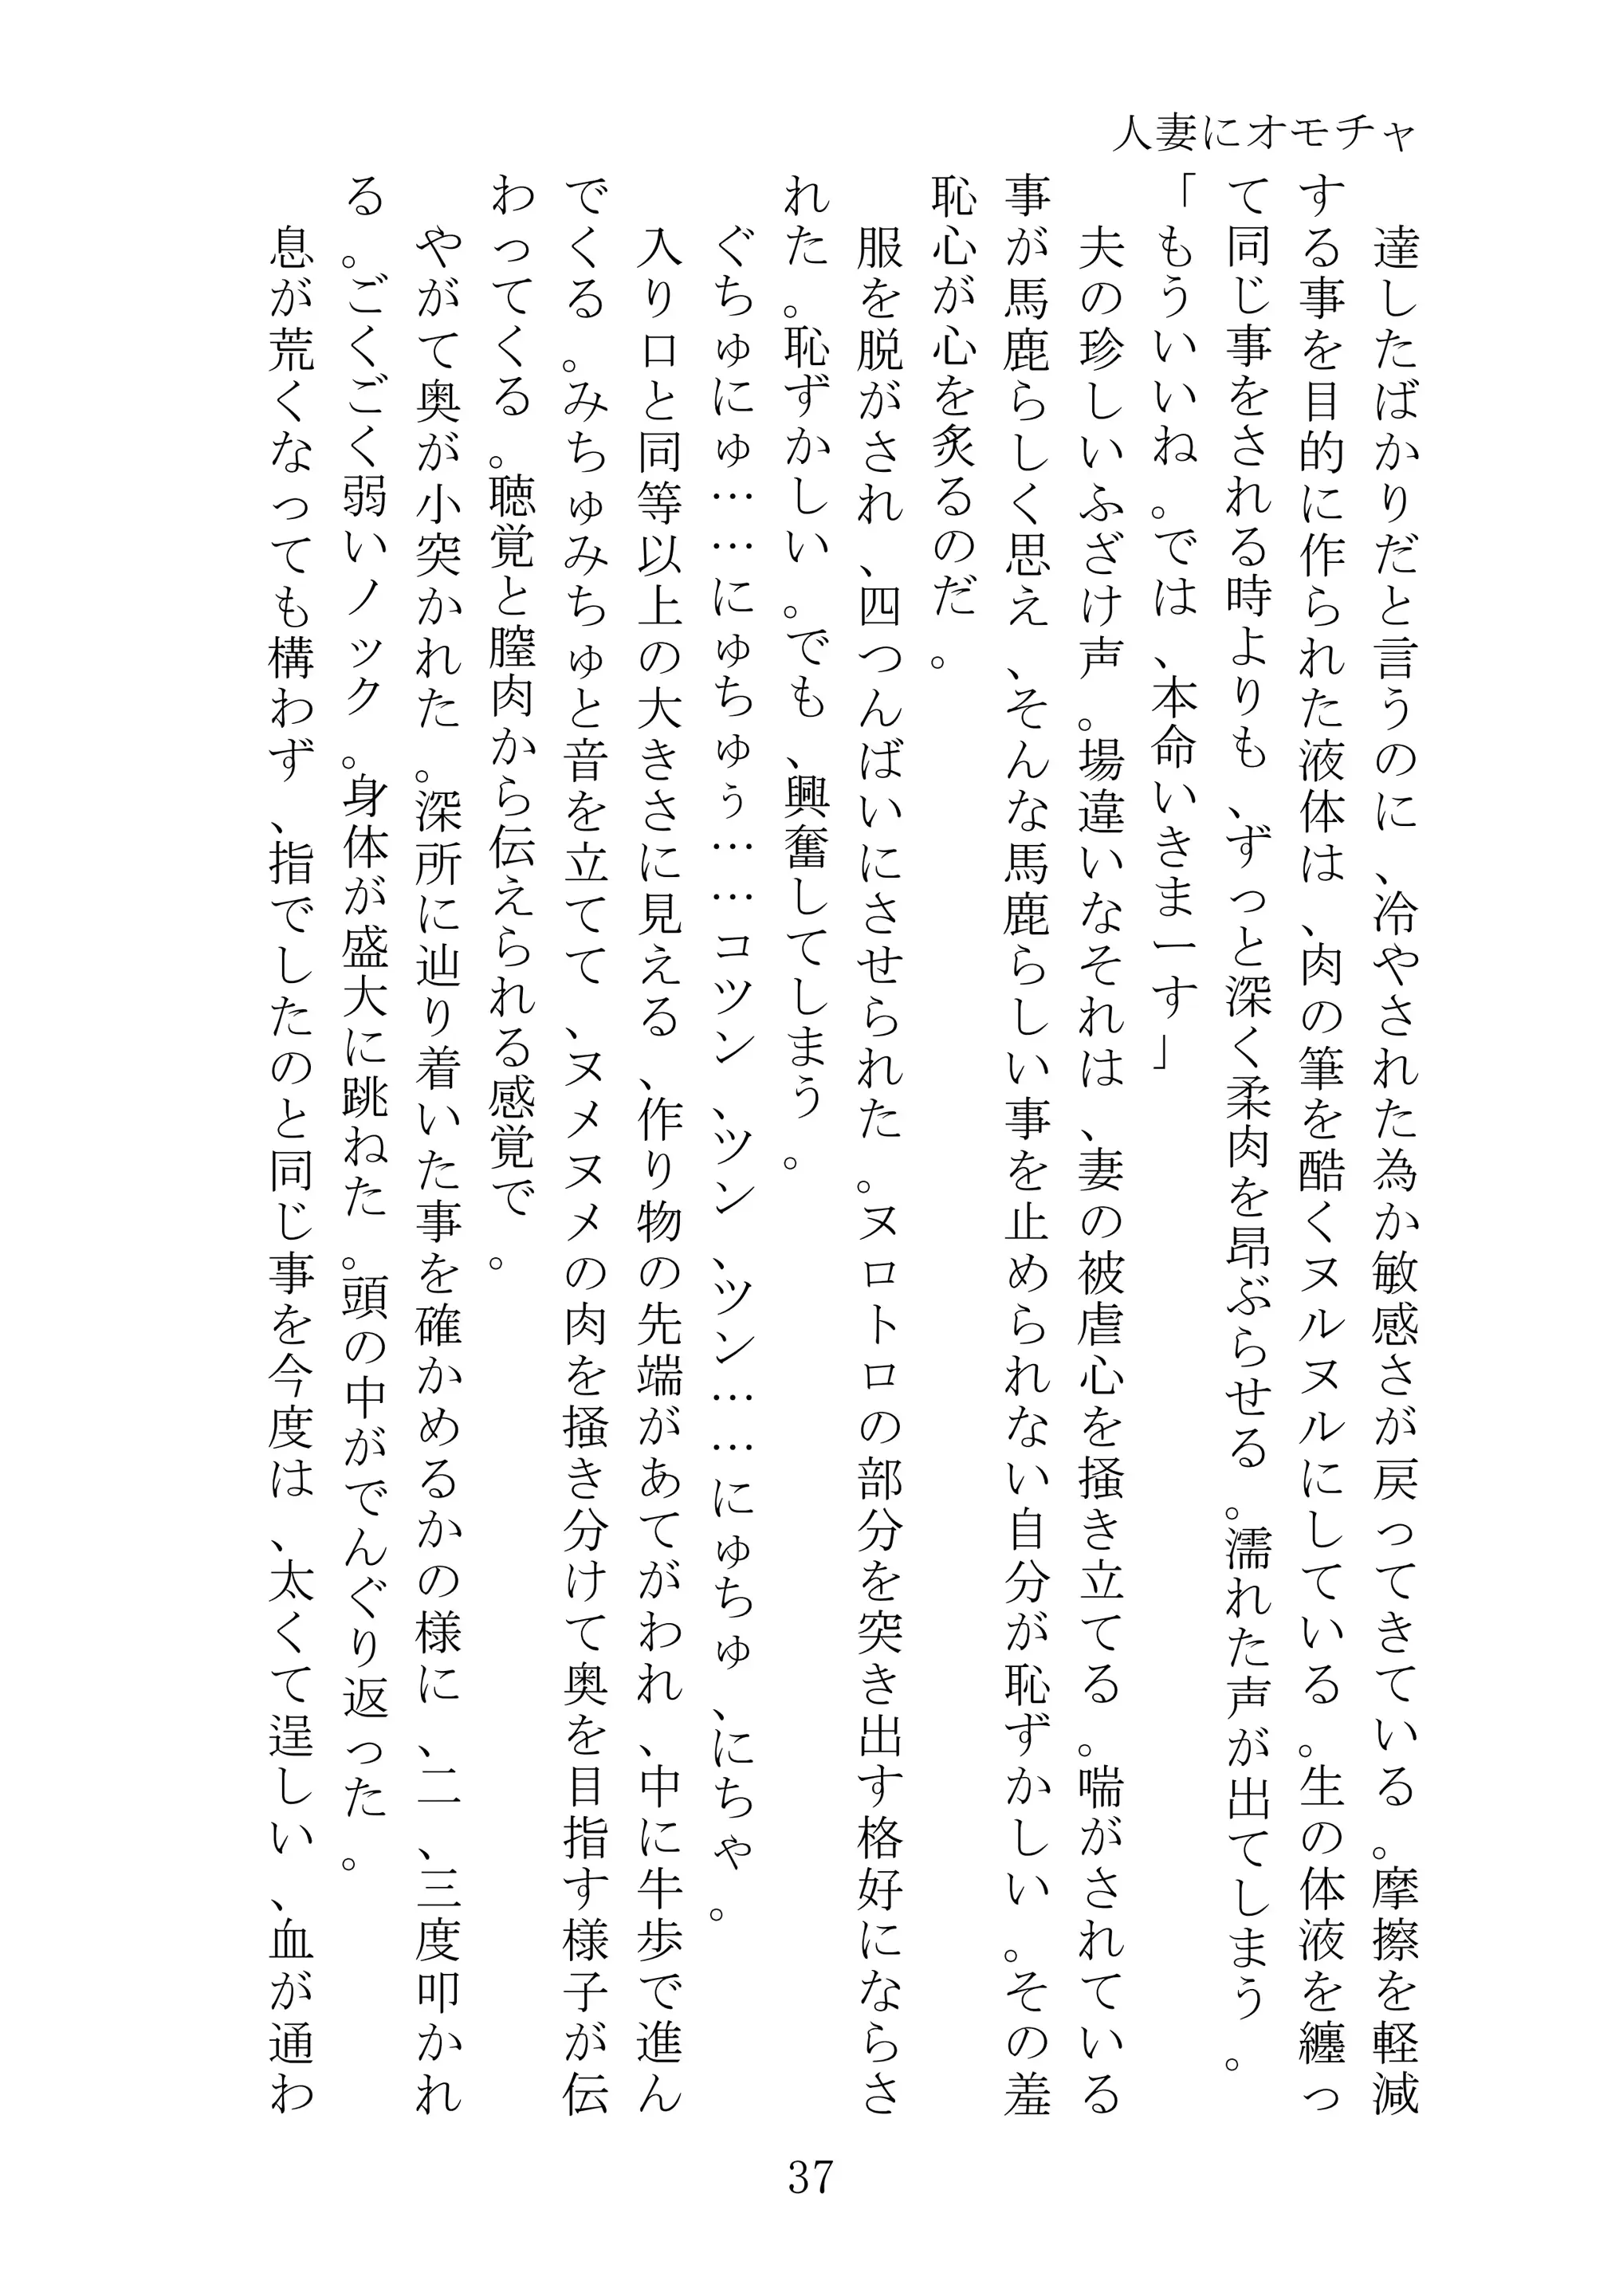 人妻にオモチャ
　達したばかりだと言うのに、冷やされた為か敏感さが戻ってきている。摩擦を軽減
する事を目的に作られた液体は、肉の筆を酷くヌルヌルにしている。生の体液を纏っ
て同じ事をされる時よりも、ずっと深く柔肉を昂ぶらせる。濡れた声が出てしまう。
「もういいね。では、本命いきまーす」
　夫の珍しいふざけ声。場違いなそれは、妻の被虐心を掻き立てる。喘がされている
事が馬鹿らしく思え、そんな馬鹿らしい事を止められない自分が恥ずかしい。その羞
恥心が心を炙るのだ。
　服を脱がされ、四つんばいにさせられた。ヌロトロの部分を突き出す格好にならさ
れた。恥ずかしい。でも、興奮してしまう。
　ぐちゅにゅ……にゅちゅぅ……コツン、ツン、ツン……にゅちゅ、にちゃ。
　入り口と同等以上の大きさに見える、作り物の先端があてがわれ、中に牛歩で進ん
でくる。みちゅみちゅと音を立てて、ヌメヌメの肉を掻き分けて奥を目指す様子が伝
わってくる。聴覚と膣肉から伝えられる感覚で。
　やがて奥が小突かれた。深所に辿り着いた事を確かめるかの様に、二、三度叩かれ
る。ごくごく弱いノック。身体が盛大に跳ねた。頭の中がでんぐり返った。
　息が荒くなっても構わず、指でしたのと同じ事を今度は、太くて逞しい、血が通わ
37